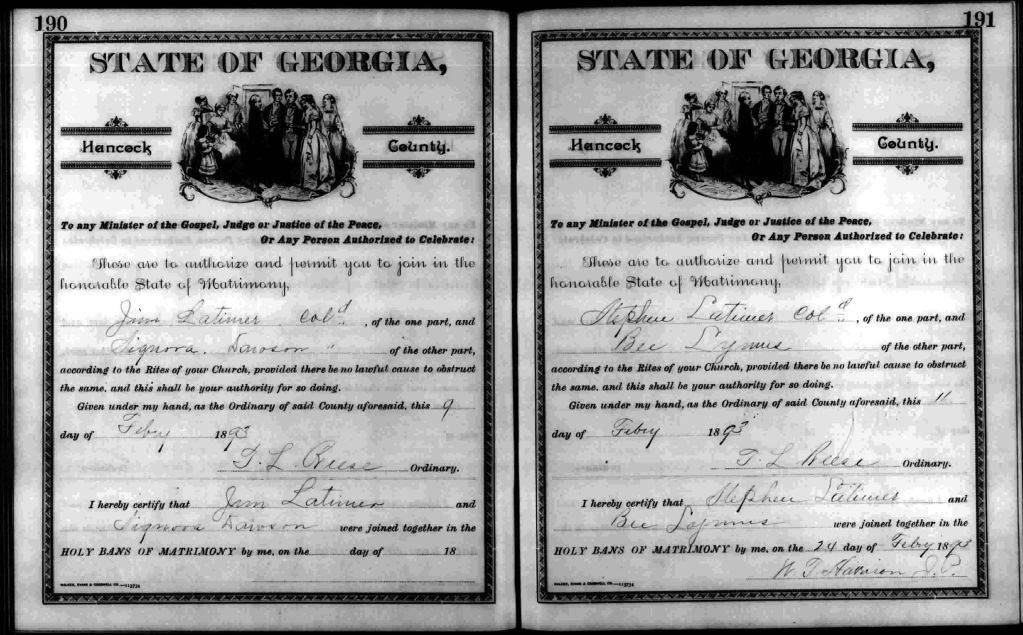 190
STATE OF GEORGIA,
Hancock County.
To any Minister of the Gospel, Judge or Justice of the Peace,
Or Any Person Authorized to Celebrate:
These are to authorize and permit you to join in the
honorable State of Matrimony,
Jim Latimer Col'd , of the one part, and
Signora Dawson " of the other part,
according to the Rites of your Church, provided there be no lawful cause to obstruct
the same, and this shall be your authority for so doing.
Given under my hand, as the Ordinary of said County aforesaid, this 9
day of Febry 1893
T. L. Reese Ordinary.
I hereby certify that Jim Latimer and
Signora Dawson were joined together in the
HOLY BANS OF MATRIMONY by me, on the day of 18
WALKER, EVANS & COGSWELL CO.—113734
191
STATE OF GEORGIA,
Hancock County.
To any Minister of the Gospel, Judge or Justice of the Peace,
Or Any Person Authorized to Celebrate:
These are to authorize and permit you to join in the
honorable State of Matrimony,
Stephen Latimer Col'd , of the one part, and
Bee Lynus of the other part,
according to the Rites of your Church, provided there be no lawful cause to obstruct
the same, and this shall be your authority for so doing.
Given under my hand, as the Ordinary of said County aforesaid, this 11
day of Febry 1893
T L Reese Ordinary.
I hereby certify that Stephen Latimer and
Bee Lynus were joined together in the
HOLY BANS OF MATRIMONY by me, on the 24 day of Febry 1893
W T Harrison J.P.
WALKER, EVANS & COGSWELL CO.—113734